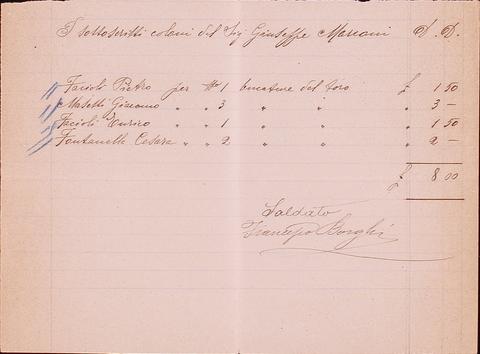 I sottoscritti coloni del Sig Giuseppe Mariani D. D.
Facioli Pietro per N° 1 bucature del toro £ 1 50
Masetti Giacomo " " 3 " " " 3 —
Facioli Enrico " " 1 " " " 1 50
Fontanelli Cesare " " 2 " " " 2 —
£ 8 00
Saldato
Francesco Borghi